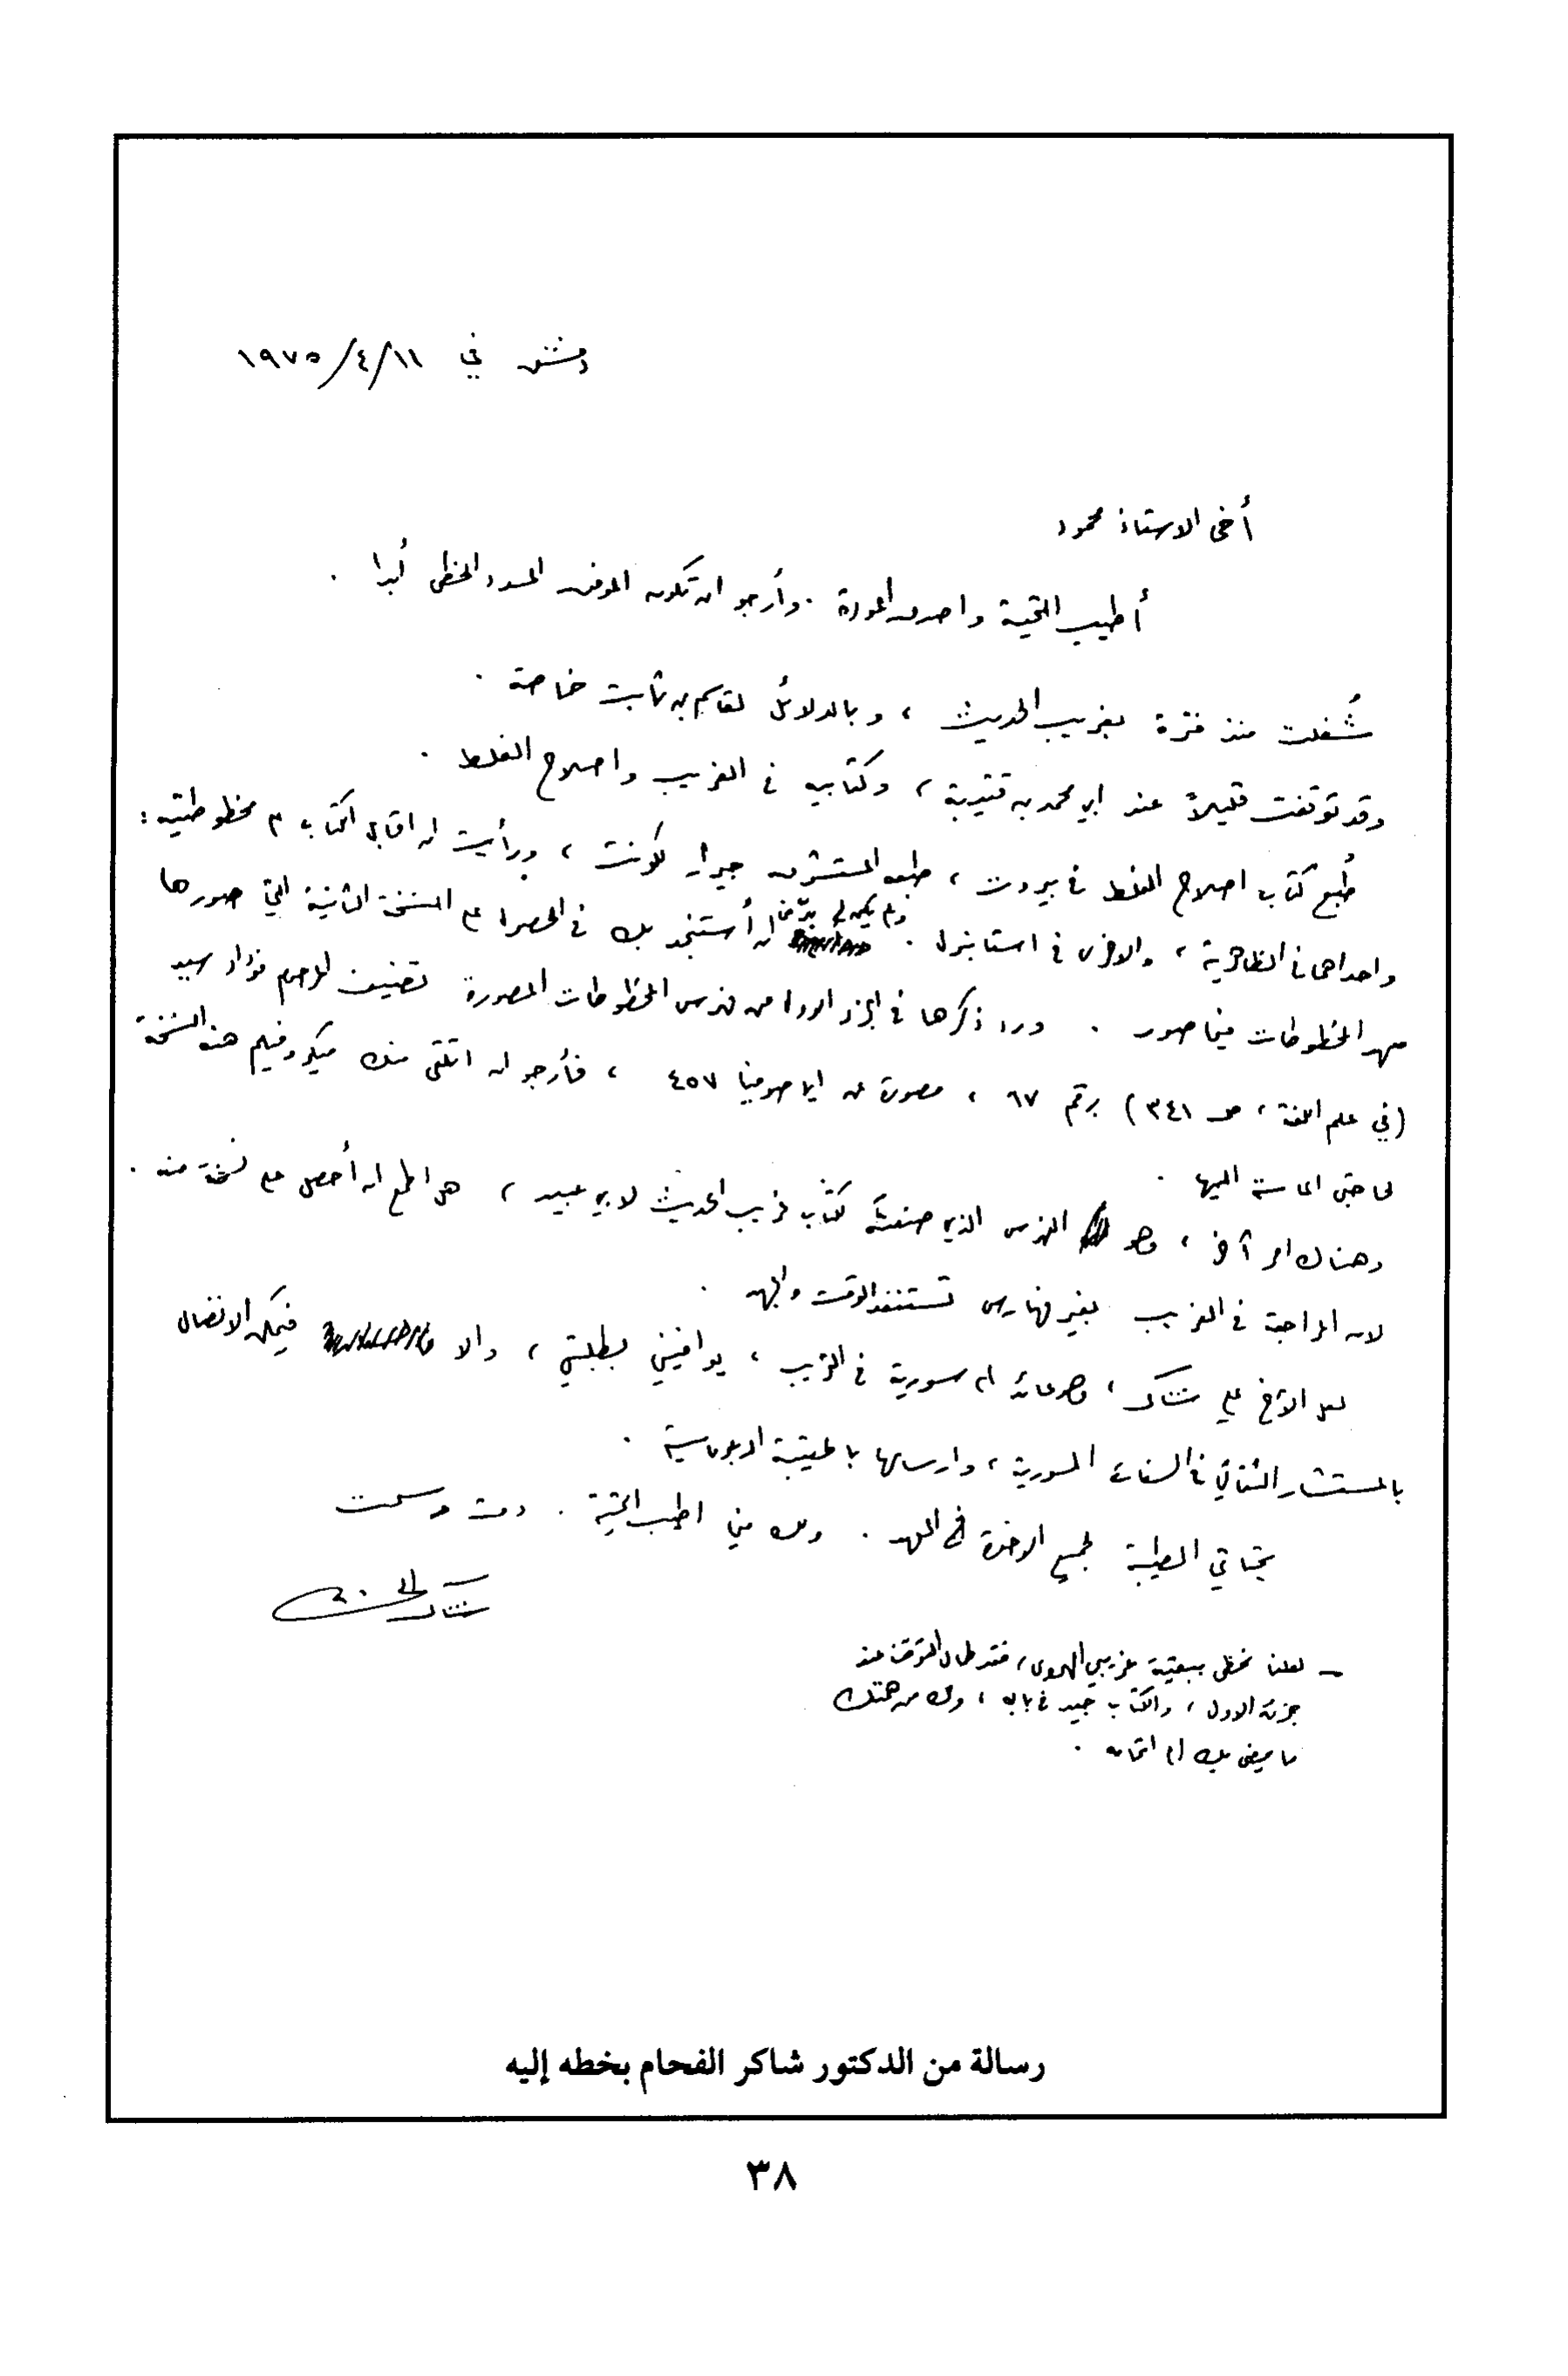 دمشق في ١١/٤/١٩٧٥
أخي الاستاذ محمود
أطيب التحية واصدق المودة . وأرجو ان تكون الموفق المسدد الخطى أبدا .
شُغلت منذ فترة بغريب الحديث ، وبالدلائل لقاسم بن ثابت خاصة .
وقد توقفت قليلاً عند ابي محمد بن قتيبة ، وكتابيه في الغريب واصلاح الغلط .
طُبع كتاب اصلاح الغلط في بيروت ، طبعه المستشرق جيرار لكونت ، ورأيت ان اقابل الكتاب بمخطوطتيه :
واحداهما في الظاهرية ، والاخرى في استانبول . ولم يكن لي بدّ من ان أستنجد بك في الحصول على النسخة الثانية التي صورها
معهد المخطوطات فيما صور . ورد ذكرها في الجزء الاول من فهرس المخطوطات المصورة تصنيف المرحوم فؤاد سيد
(في علم اللغة ، ص ٣٤١) برقم ٦٧ ، مصورة عن ايا صوفيا ٤٥٧ ، فأرجو ان اتلقى منك ميكروفيلم هذه النسخة
لحاجتي الماسة اليها .
وهناك امر آخر ، وهو الفهرس الذي صنعته لكتاب غريب الحديث لابي عبيد ، هل اطمع ان أحصل على نسخة منه .
لان المراجعة في الغريب بغير فهارس تستنفد الوقت والجهد .
لعل الأخ علي شتاك ، وهو عائد الى سورية في القريب ، يوافيني بطلبتي ، والا فيمكن الاتصال
بالمستشار الثقافي في السفارة السورية ، وارسالها بالحقيبة الدبلوماسية .
تحياتي الطيبة لجميع الاخوة في المعهد . ولك مني اطيب التحية . دمت وسلمت
شاكر الفحام
– لعلنا نحظى ببقية غريبي الهروي ، فقد طال التوقف عند
جزئه الاول ، والكتاب جيد في بابه ، ولك من همتك
ما يمضي بك الى اتمامه .
رسالة من الدكتور شاكر الفحام بخطه إليه
٣٨